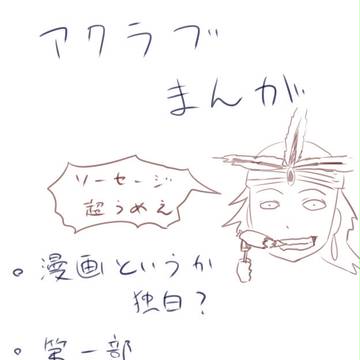 アクラブ
まんが
ソーセージ
超うめえ
。漫画というか
独白?
。第一部